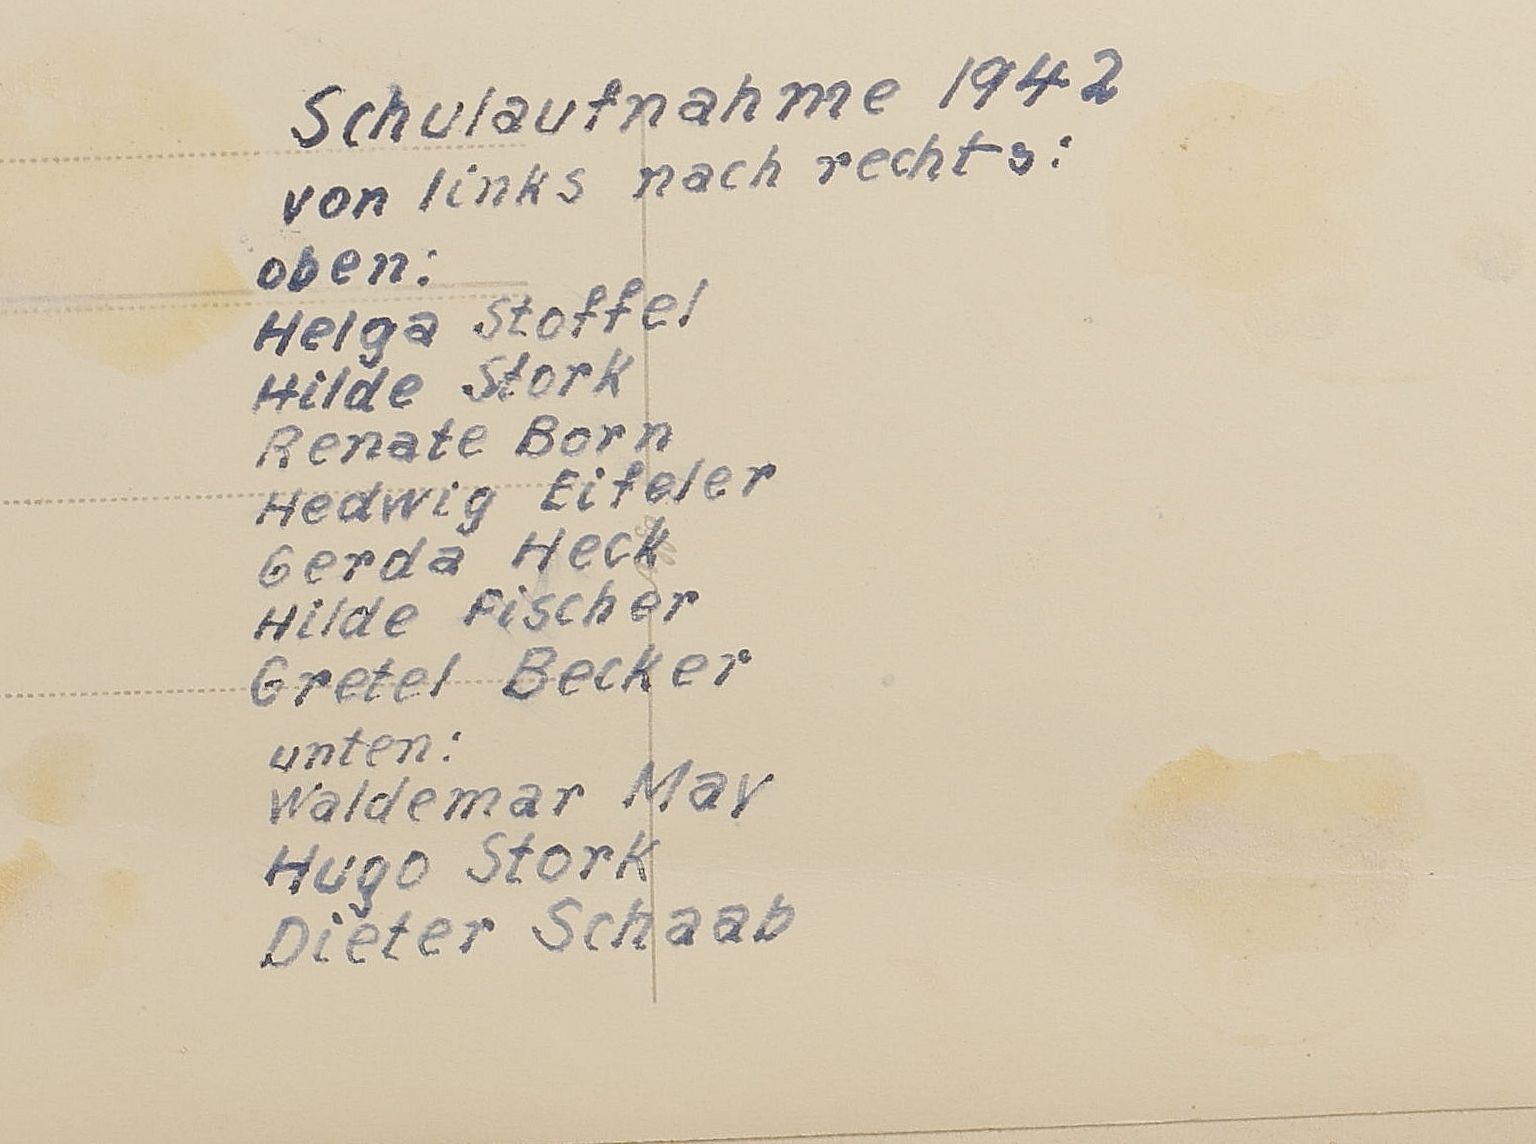 Schulaufnahme 1942
von links nach rechts:
oben:
Helga Stoffel
Hilde Stork
Renate Born
Hedwig Eifeler
Gerda Heck
Hilde Fischer
Gretel Becker
unten:
Waldemar May
Hugo Stork
Dieter Schaab